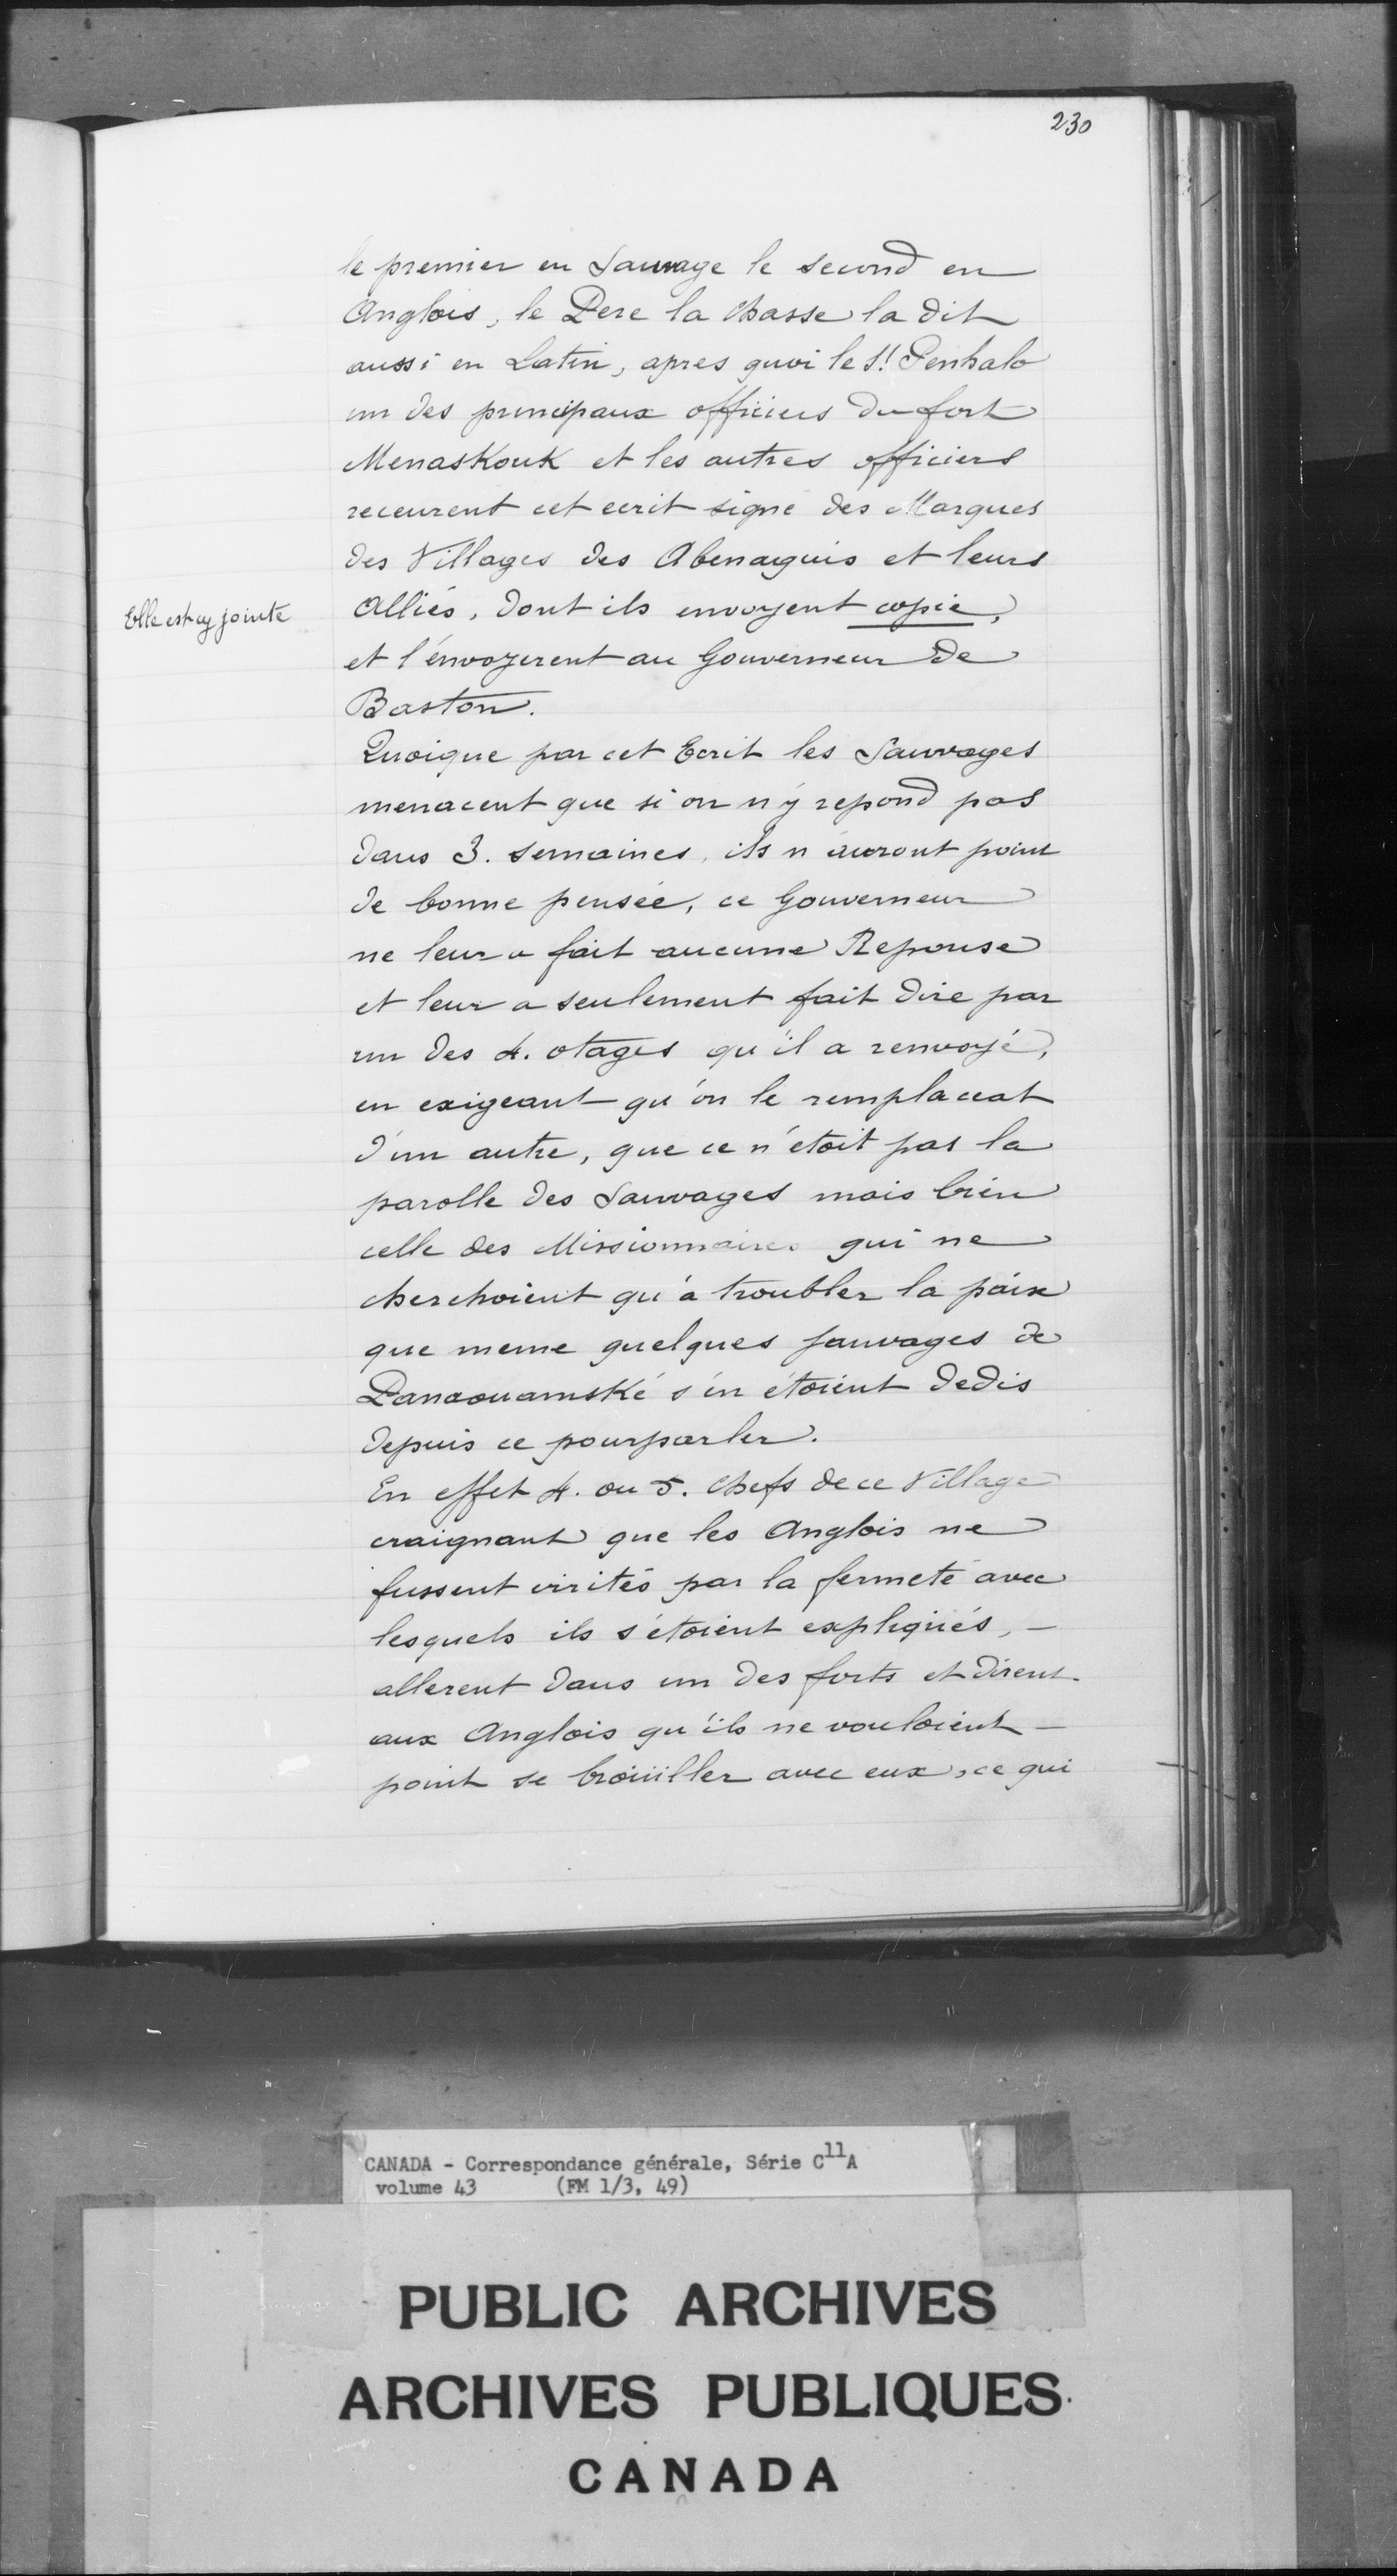 230
le premier en Sauvage le second en
Anglois, le Pere la Chasse la dit
aussi en Latin, apres quoi le S.r Penhalo
un des principaux officiers du fort
Menaskouk et les autres officiers
receurent cet ecrit signé des Marques
des Villages des Abenaquis et leurs
Elle est cy jointe
Alliés, dont ils envoyent copie,
et l'envoyerent au Gouverneur de
Baston.
Quoique par cet Ecrit les Sauvages
menacent que si on n'y repond pas
dans 3. semaines, ils n'auront point
de bonne pensée, ce Gouverneur
ne leur a fait aucune Reponse
et leur a seulement fait dire par
un des 4. otages qu'il a renvoyé,
en exigeant qu'on le remplaceat
d'un autre, que ce n'étoit pas la
parolle des Sauvages mais bien
celle des Missionnaires qui ne
cherchoient qu'à troubler la paix
que meme quelques sauvages de
Panaouamské s'en étoient dedis
depuis ce pourparler.
En effet 4. ou 5. Chefs de ce Village
craignant que les Anglois ne
fussent irrités par la fermeté avec
lesquels ils s'étoient expliqués, -
allerent dans un des forts et dirent
aux Anglois qu'ils ne vouloient -
point se broüiller avec eux, ce qui
CANADA - Correspondance générale, Série C11A
volume 43 (FM 1/3, 49)
PUBLIC ARCHIVES
ARCHIVES PUBLIQUES
CANADA